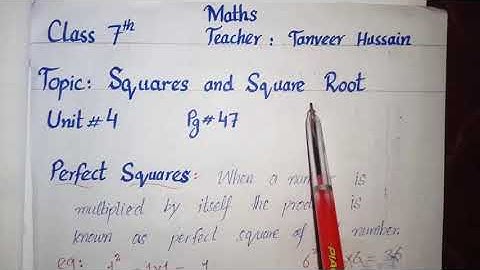 Maths
Class 7th
Teacher : Tanveer Hussain
Topic: Squares and Square Root
Unit # 4 Pg # 47
Perfect Squares: When a is
multiplied by itself the is
known as perfect square of number.
eg: